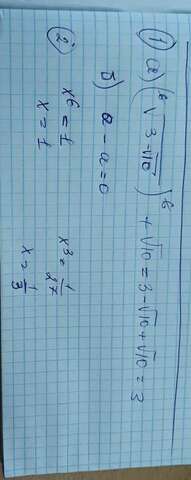 ① а) (⁶√3-√10)⁶ + √10 = 3-√10+√10 = 3
б) a - a = 0
② x⁶ = 1 x³ = 1/27
x = 1 x = 1/3